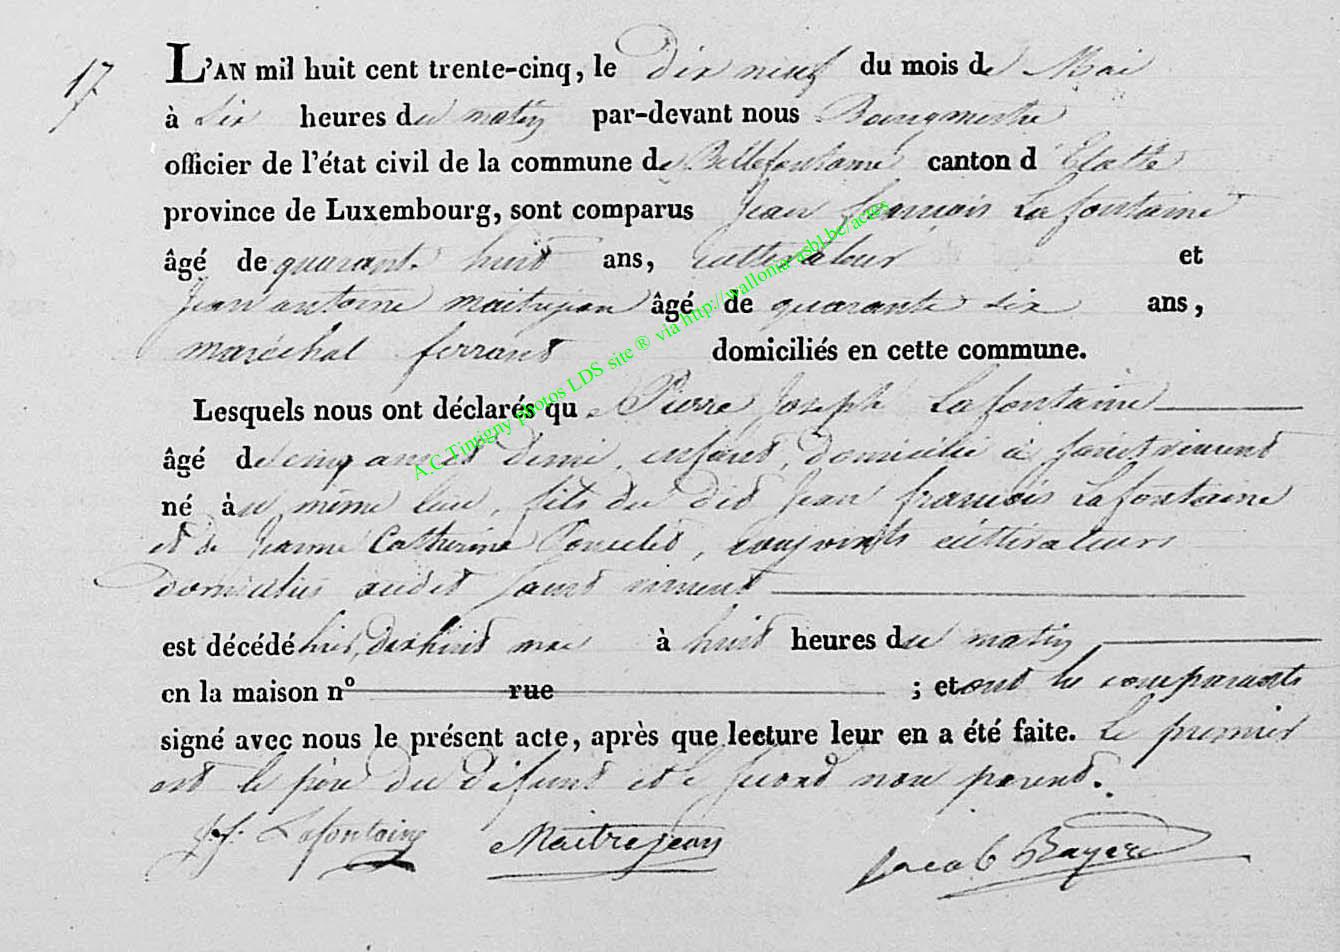 17
L'AN mil huit cent trente-cinq, le dix neuf du mois de Mai
à six heures du matin par-devant nous Bourgmestre
officier de l'état civil de la commune de Bellefontaine canton d'Etalle
province de Luxembourg, sont comparus Jean françois Lafontaine
âgé de quarante huit ans, cultivateur et
Jean antoine maitrejean âgé de quarante six ans,
maréchal ferrant domiciliés en cette commune.
Lesquels nous ont déclarés que Pierre Joseph Lafontaine
âgé de cinq ans et demi, enfant, domicilié à saint vincent
né au même lieu, fils du dit Jean françois Lafontaine
et de Jeanne Catherine Poncelet, conjoints cultivateurs
domiciliés audit saint vincent
est décédé hier, dix huit mai à huit heures du matin
en la maison nº rue ; et ont les comparants
signé avec nous le présent acte, après que lecture leur en a été faite. Le premier
est le père du défunt et le second non parent.
J. f. Lafontaine Maitrejean Jacob
A.C.Tintigny photos LDS site ® via http://wallonia-asbl.be/actes